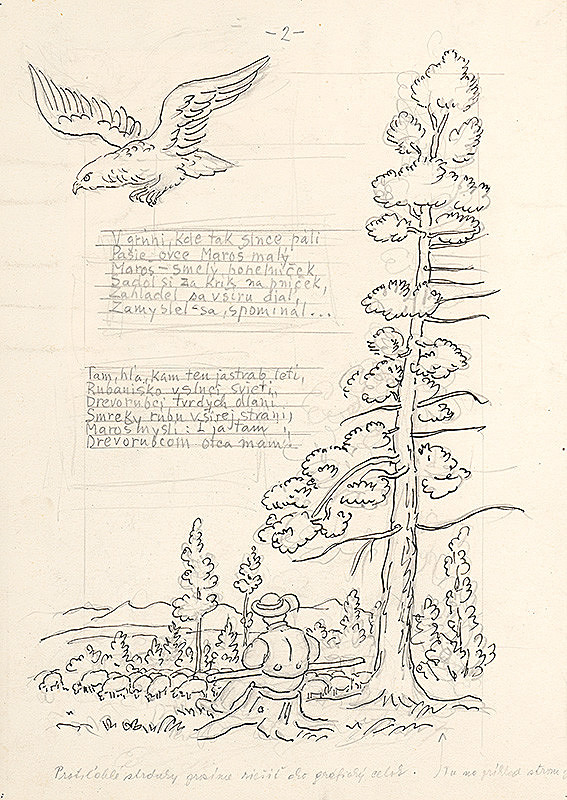 -2-
V grúni, kde tak slnce páli
Pasie ovce Maroš malý
Maroš-smelý honelníček
Sadol si za krík na pníček,
Zahľadel sa v šíru diaľ,
Zamyslel-sa, spomínal...
Tam, hľa, kam ten jastrab letí,
Rúbanisko v slnci svieti,
Drevorubci tvrdých dlaní
Smreky rúbu v šírej stráni,
Maroš myslí: I ja tam
Drevorubcom otca mám.
Protiľahlé stránky prosíme riešiť ako grafický celok.
Tu na príklad strom